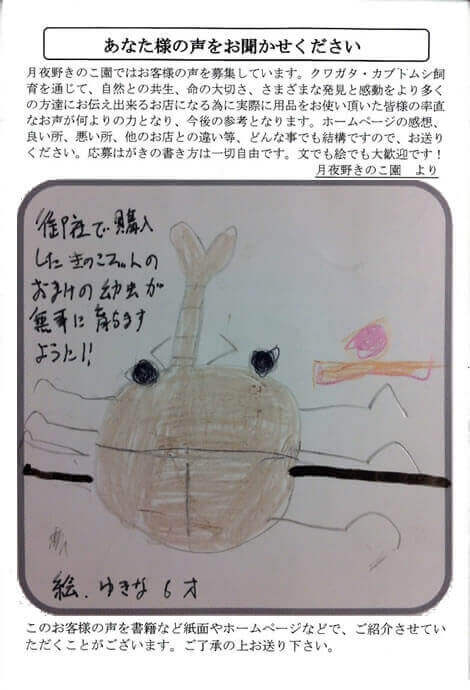 あなた様の声をお聞かせください
月夜野きのこ園ではお客様の声を募集しています。クワガタ・カブトムシ飼
育を通じて、自然との共生、命の大切さ、さまざまな発見と感動をより多く
の方達にお伝え出来るお店になる為に実際に用品をお使い頂いた皆様の率直
なお声が何よりの力となり、今後の参考となります。ホームページの感想、
良い所、悪い所、他のお店との違い等、どんな事でも結構ですので、お送り
ください。応募はがきの書き方は一切自由です。文でも絵でも大歓迎です！
月夜野きのこ園　より
御社で購入
したきのこゼリーの
おまけの幼虫が
無事に育ちます
ように!!
絵．ゆきな 6才
このお客様の声を書籍など紙面やホームページなどで、ご紹介させてい
ただくことがございます。ご了承の上お送り下さい。